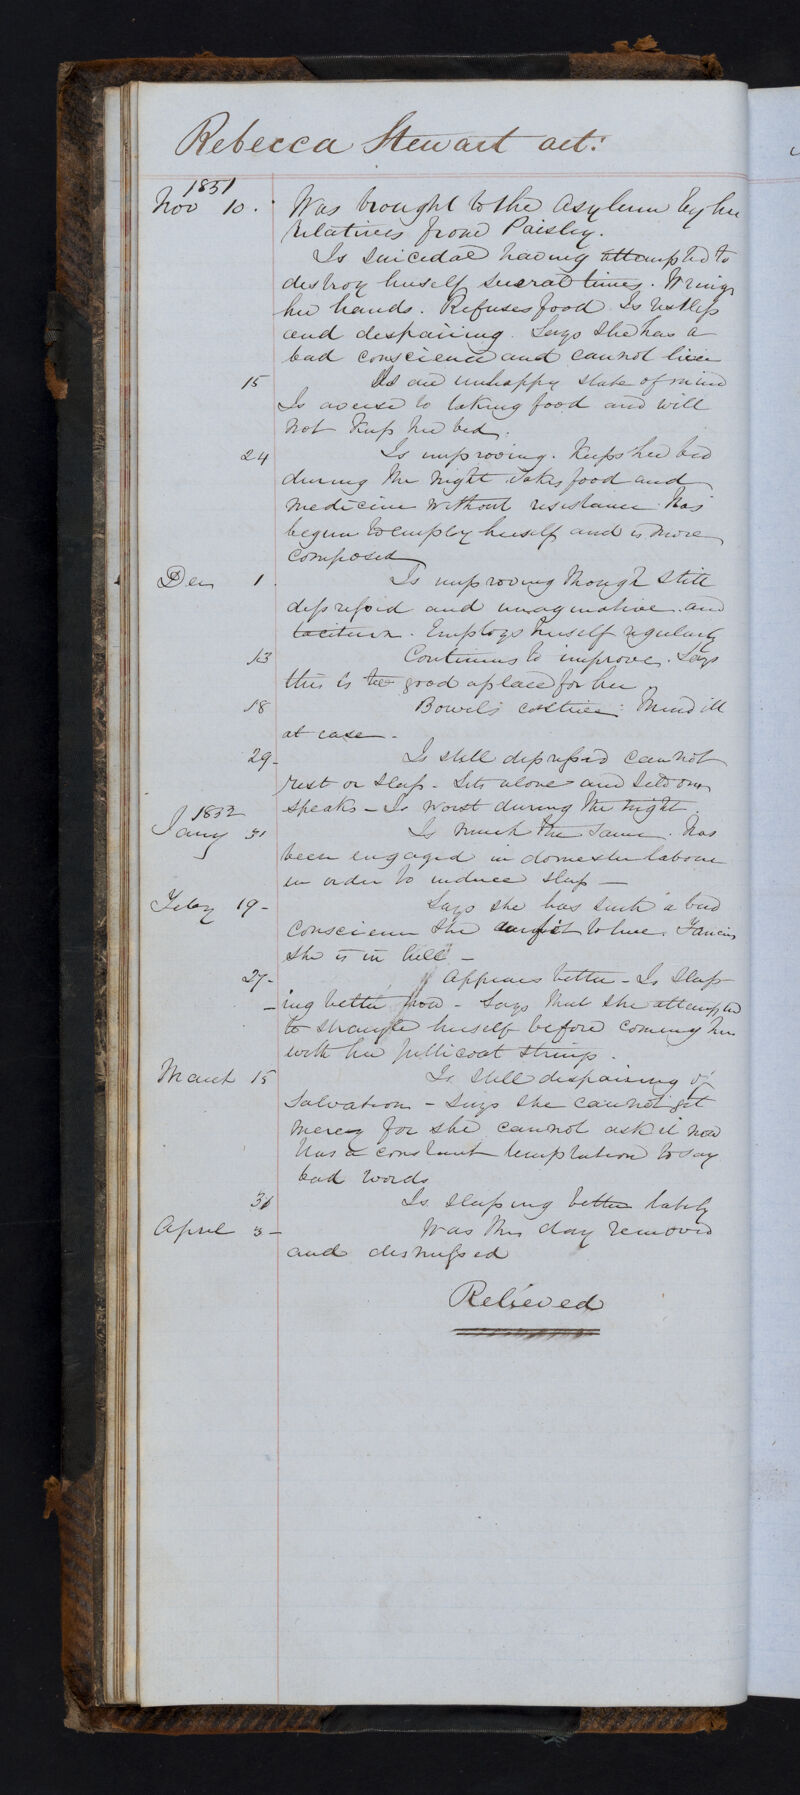 Rebecca Stewart aet:
1851
Nov 10. Was brought to the asylum by her
relatives from Paisley.
Is suicidal having attempted to
destroy herself several times. Wrings
her hands. Refuses food Is restless
and despairing. Says she has a
bad conscience and cannot live
15 In an unhappy state of mind
Is averse to taking food and will
not keep her bed.
24 Is improving. Keeps her bed
during the night takes food and
medicine without resistance. Has
begun to employ herself and is more
composed
Decr 1. Is improving though still
depressed and imaginative and
taciturn. Employs herself regularly
13 Continues to improve. Says
this is too good a place for her
18 Bowels costive: Mind ill
at ease -
29- Is still depressed cannot
rest or sleep - Sits alone and seldom
speaks - Is worst during the night.
1852
Jany 31 Is much the same. Has
been engaged in domestic labour
in order to induce sleep -
Feby 19- Says she has such a bad
conscience she to live. Fancies
she is in hell -
27- Appears better - Is sleep-
- ing better now - Says that she attempted
to strangle herself before coming here
with her petticoat strings.
March 15 Is still despairing of
salvation - Says she cannot get
mercy for she cannot ask it now
Has a constant temptation to say
bad words
31 Is sleeping better lately
April 3- Was this day removed
and dismissed
Relieved